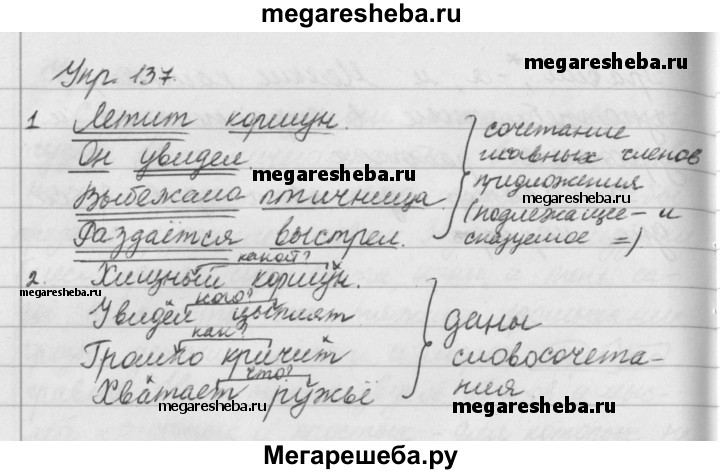 megaresheba.ru
Упр. 137.
megaresheba.ru
1. Летит коршун.
Он увидел
Выбежала птичница.
Раздаётся выстрел.
сочетание
главных членов
предложения
(подлежащее — и
сказуемое =)
megaresheba.ru
megaresheba.ru
какой?
2. Хищный коршун.
megaresheba.ru
кого?
Увидел цыплят
как?
Громко кричит
что?
Хватает ружьё
даны
словосочета-
ния
megaresheba.ru
megaresheba.ru
Мегарешеба.ру